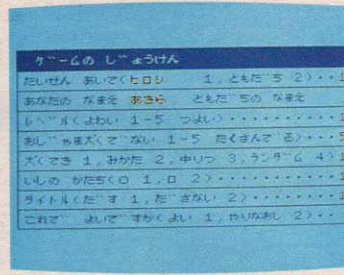 ゲームの じょうけん
たいせん あいて(ヒロシ 1,ともだち 2)・・1
あなたの なまえ あきら ともだちの なまえ
レベル(よわい 1-5 つよい)・・・・・・・・
おじゃま犬(でない 1-5 たくさんでる)・・・5
犬(てき 1,みかた 2,中りつ 3,ランダム 4)1
いしの かたち(○ 1,□ 2)・・・・・・・・・・1
タイトル(だす 1,ださない 2)・・・・・・・・1
これで よいですか(よい 1,やりなおし 2)・・